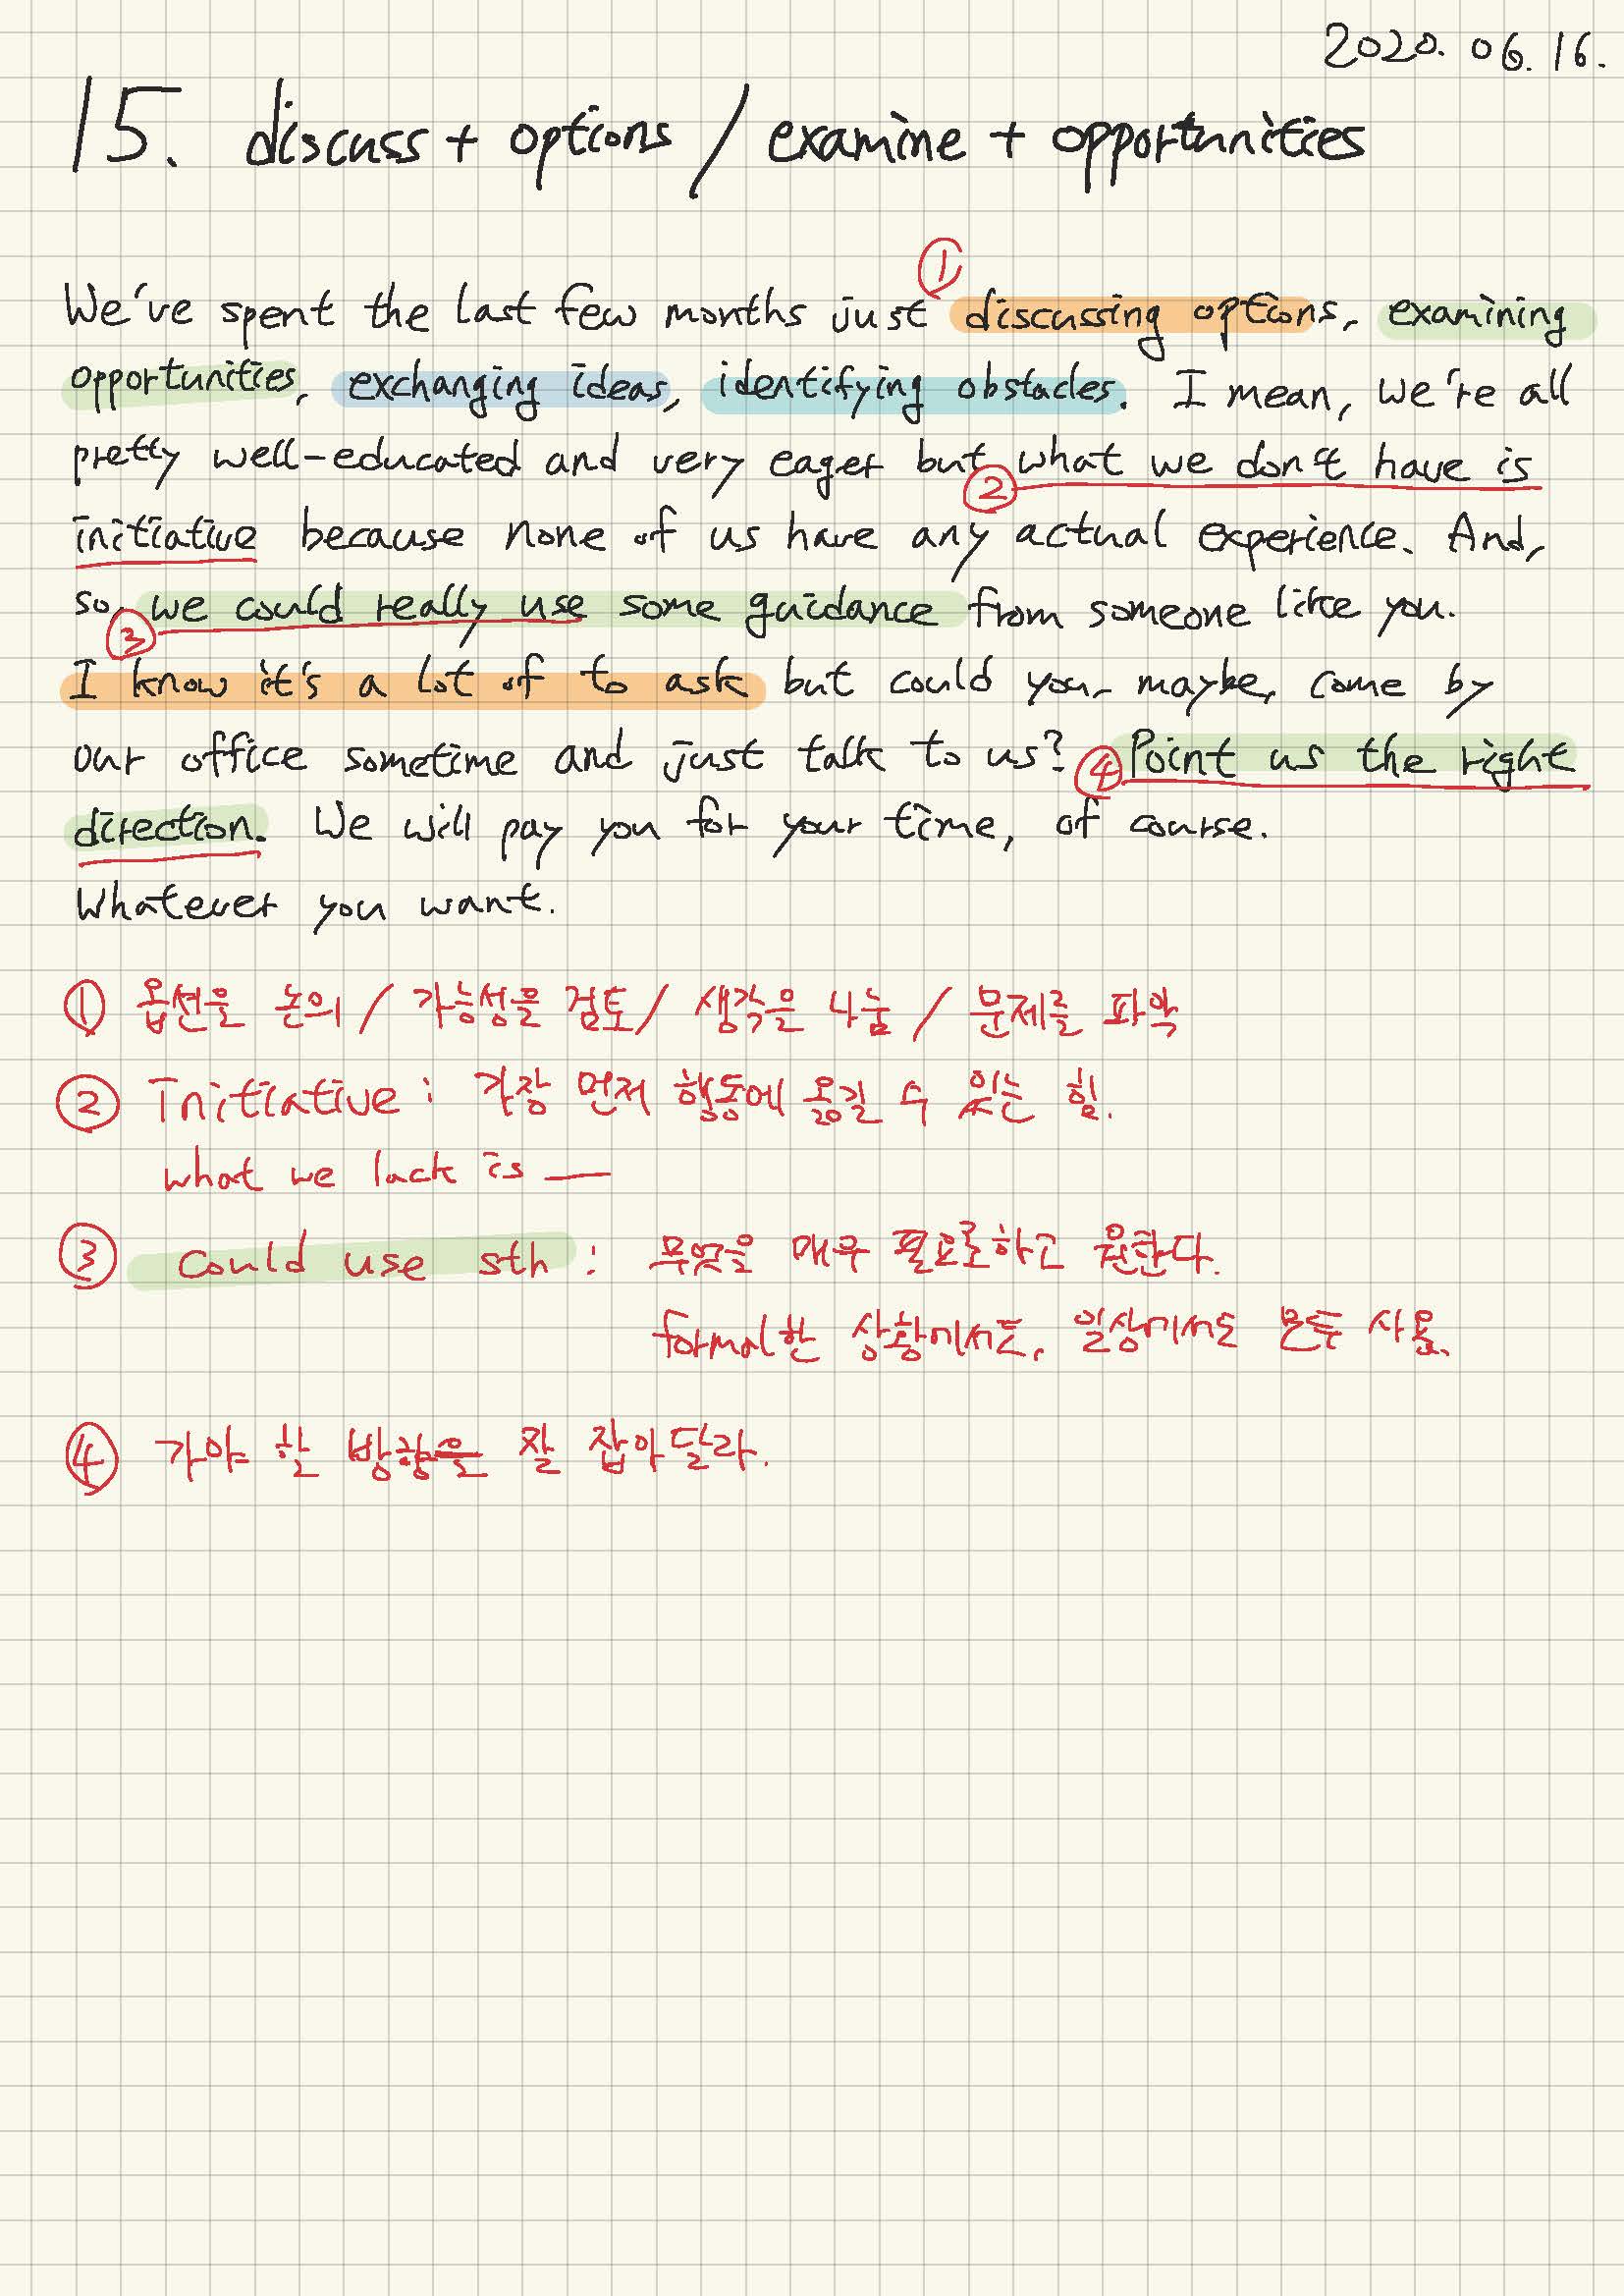 2020. 06. 16.
15. discuss + options / examine + opportunities
①
We've spent the last few months just discussing options, examining
opportunities, exchanging ideas, identifying obstacles. I mean, we're all
pretty well-educated and very eager but what we don't have is
②
initiative because none of us have any actual experience. And,
so, we could really use some guidance from someone like you.
③
I know it's a lot of to ask but could you, maybe, come by
our office sometime and just talk to us? ④ Point us the right
direction. We will pay you for your time, of course.
Whatever you want.
① 옵션을 논의 / 가능성을 검토 / 생각을 나눔 / 문제를 파악
② Initiative : 가장 먼저 행동에 옮길 수 있는 힘.
what we lack is —
③ Could use sth : 무엇을 매우 필요로하고 원한다.
formal한 상황에서도, 일상에서도 모두 사용.
④ 가야 할 방향을 잘 잡아달라.